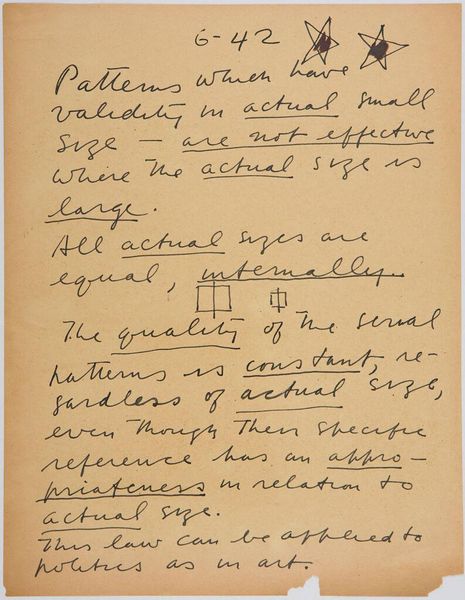 6-42
Patterns which have
validity in actual small
size — are not effective
where the actual size is
large.
All actual sizes are
equal, internally.
The quality of the serial
patterns is constant, re-
gardless of actual size,
even though their specific
reference has an appro-
priateness in relation to
actual size.
This law can be applied to
politics as in art.